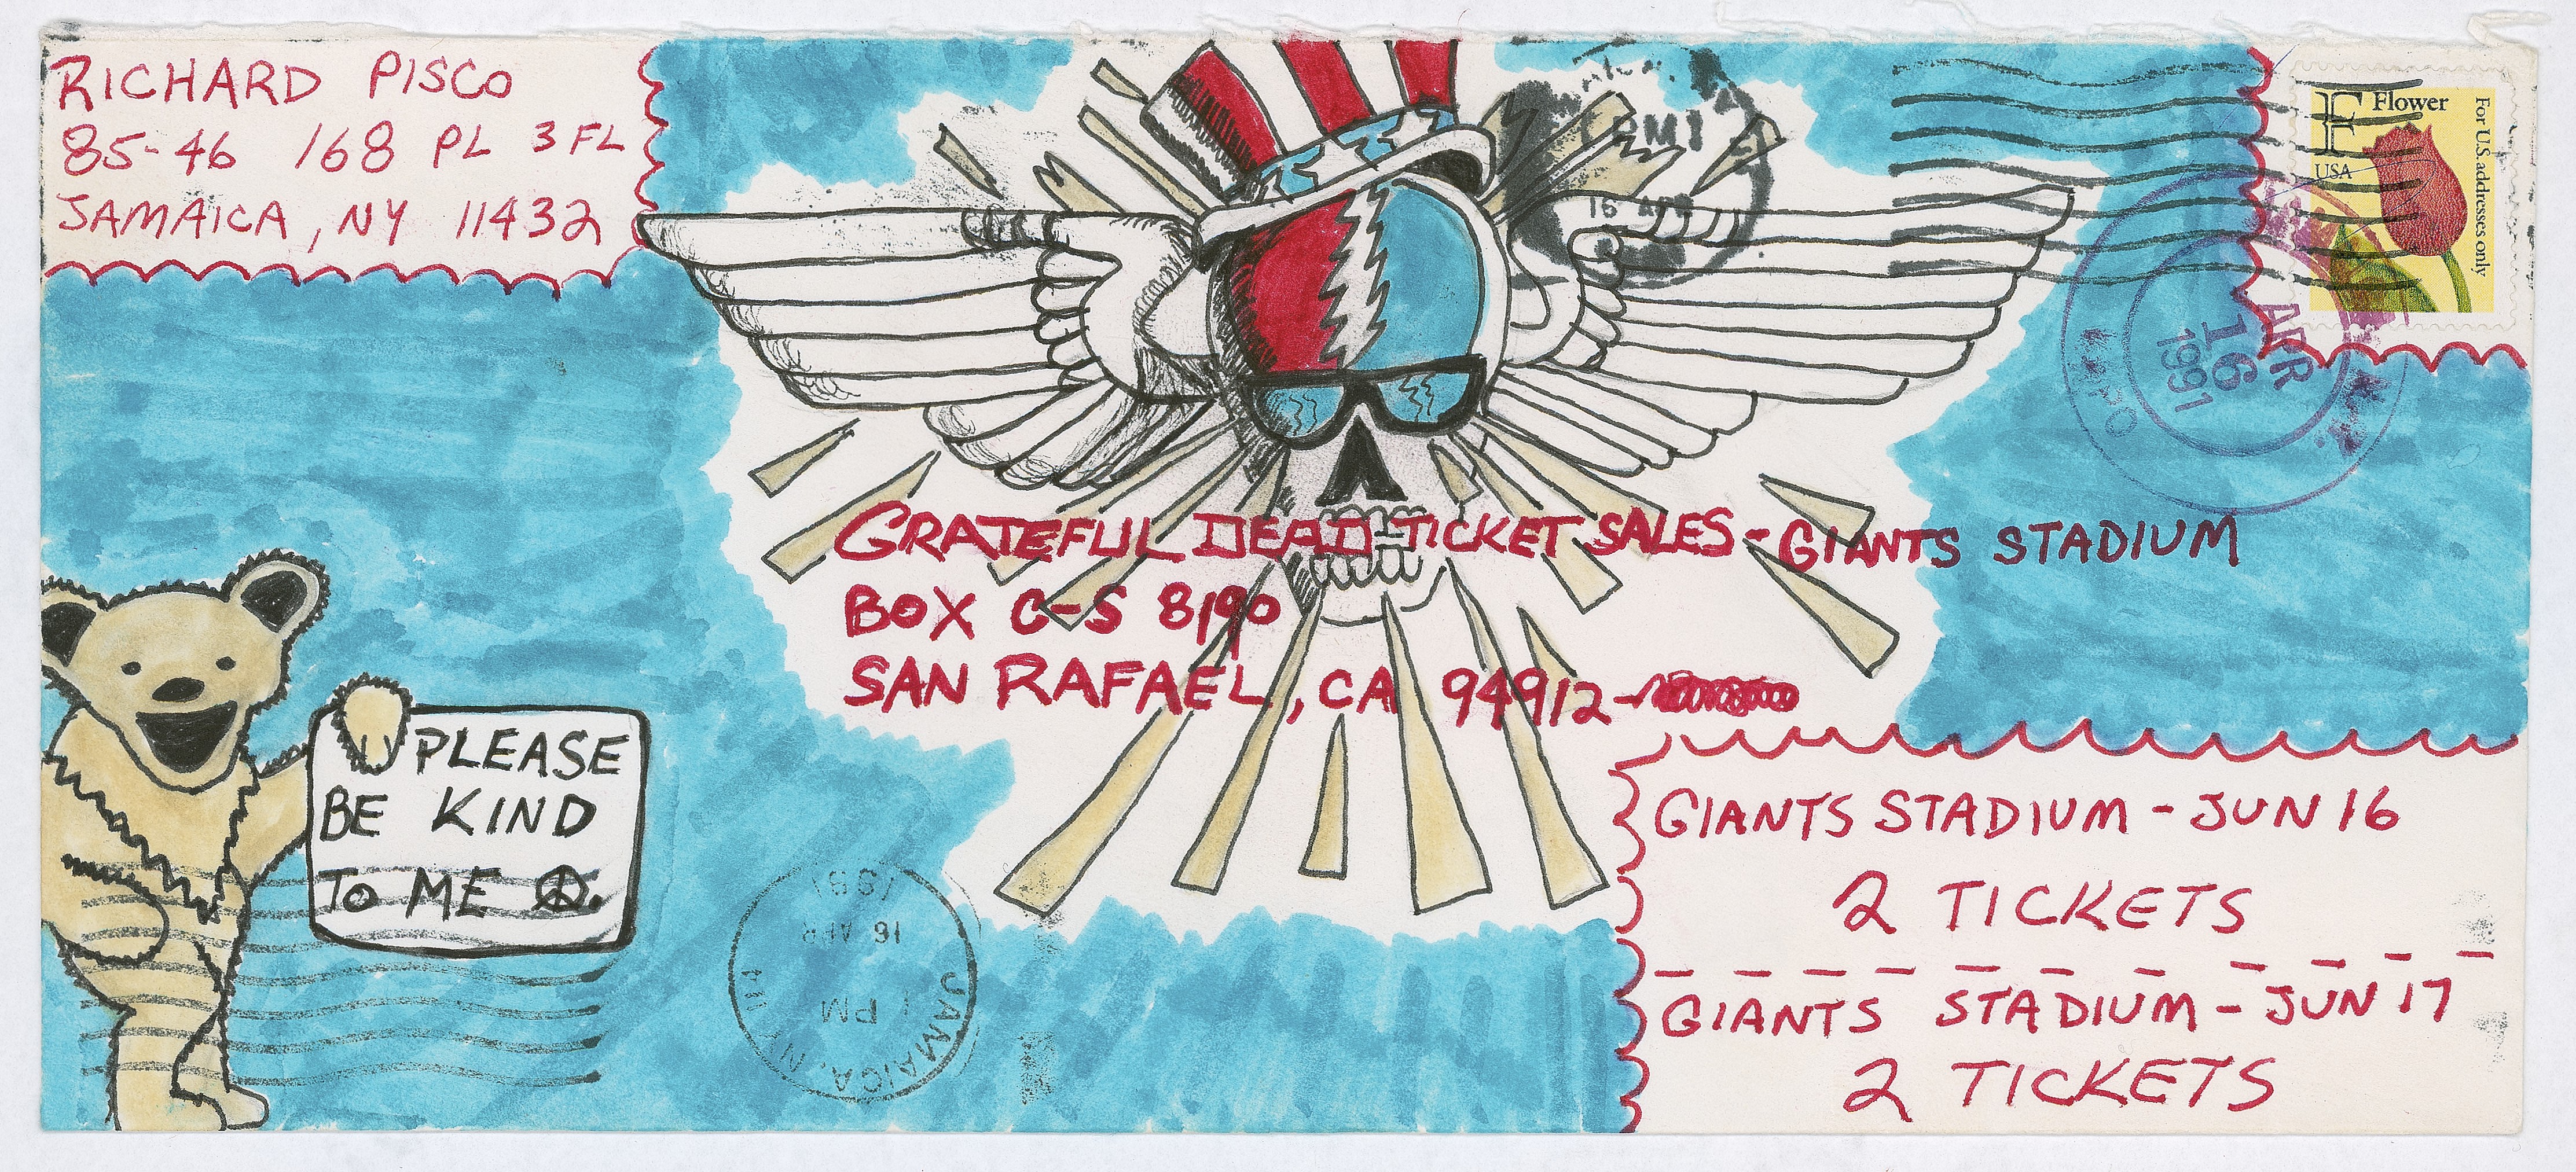 RICHARD PISCO
85-46 168 PL 3 FL
JAMAICA, NY 11432
F Flower
USA
For U.S. addresses only
PM
16 APR
APR
16
1991
GRATEFUL DEAD TICKET SALES - GIANTS STADIUM
BOX C-S 8190
SAN RAFAEL, CA 94912-
PLEASE
BE KIND
TO ME
JAMAICA, NY
1 PM
16 APR
1991
GIANTS STADIUM - JUN 16
2 TICKETS
GIANTS STADIUM - JUN 17
2 TICKETS